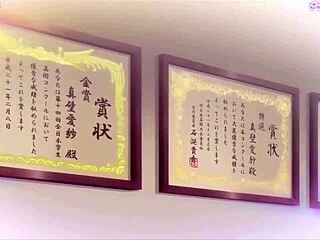 賞状
金賞
真壁愛紗 殿
あなたは第十四回全日本学生
美術コンクールにおいて
優秀な成績を収められました
よってこれを賞します
平成二十一年二月八日
賞状
特選
真壁愛紗殿
あなたは本コンクールに
おいて大変優秀な成績を
収められました
よってこれを賞します